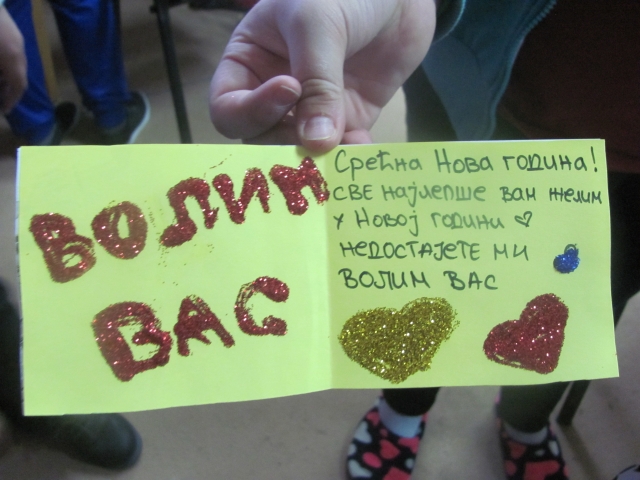 ВОЛИМ
ВАС
Срећна Нова година!
СВЕ најлепше вам желим
у Новој години
недостајете ми
ВОЛИМ ВАС